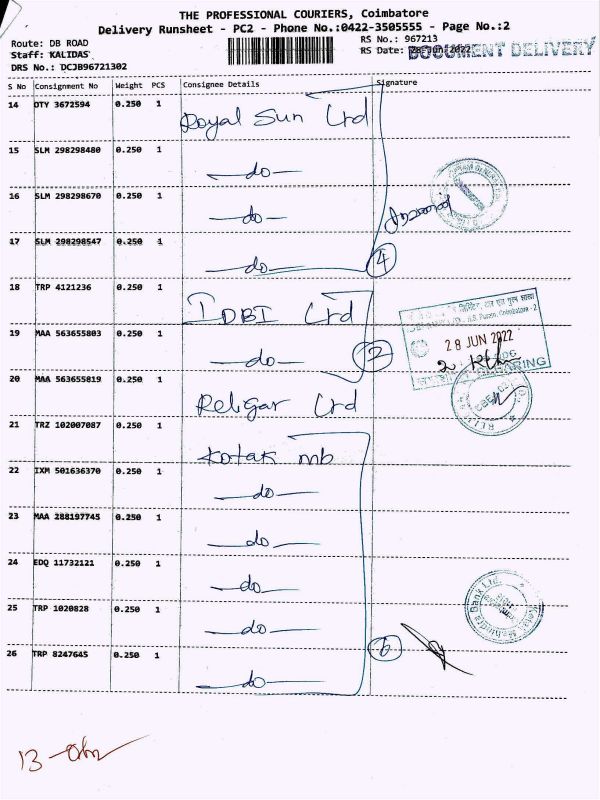 THE PROFESSIONAL COURIERS, Coimbatore
Delivery Runsheet - PC2 - Phone No.:0422-3505555 - Page No.:2
Route: DB ROAD
Staff: KALIDAS
DRS No.: DCJB96721302
RS No.: 967213
RS Date: 28 Jun 2022
DOCUMENT DELIVERY
S No Consignment No Weight PCS Consignee Details Signature
14 OTY 3672594 0.250 1 Royal Sun Ltd
15 SLM 298298480 0.250 1 —do—
16 SLM 298298670 0.250 1 —do—
17 SLM 298298547 0.250 1 —do— 4
18 TRP 4121236 0.250 1 IDBI Ltd
28 JUN 2022
19 MAA 563655803 0.250 1 —do— 2
CLEARING
20 MAA 563655819 0.250 1 Religar Ltd
21 TRZ 102007087 0.250 1 Kotak mb
22 IXM 501636370 0.250 1 —do—
23 MAA 288197745 0.250 1 —do—
24 EDQ 11732121 0.250 1 —do—
Kotak Mahindra Bank Ltd.
25 TRP 1020828 0.250 1 —do—
26 TRP 8247645 0.250 1 —do— 6
13